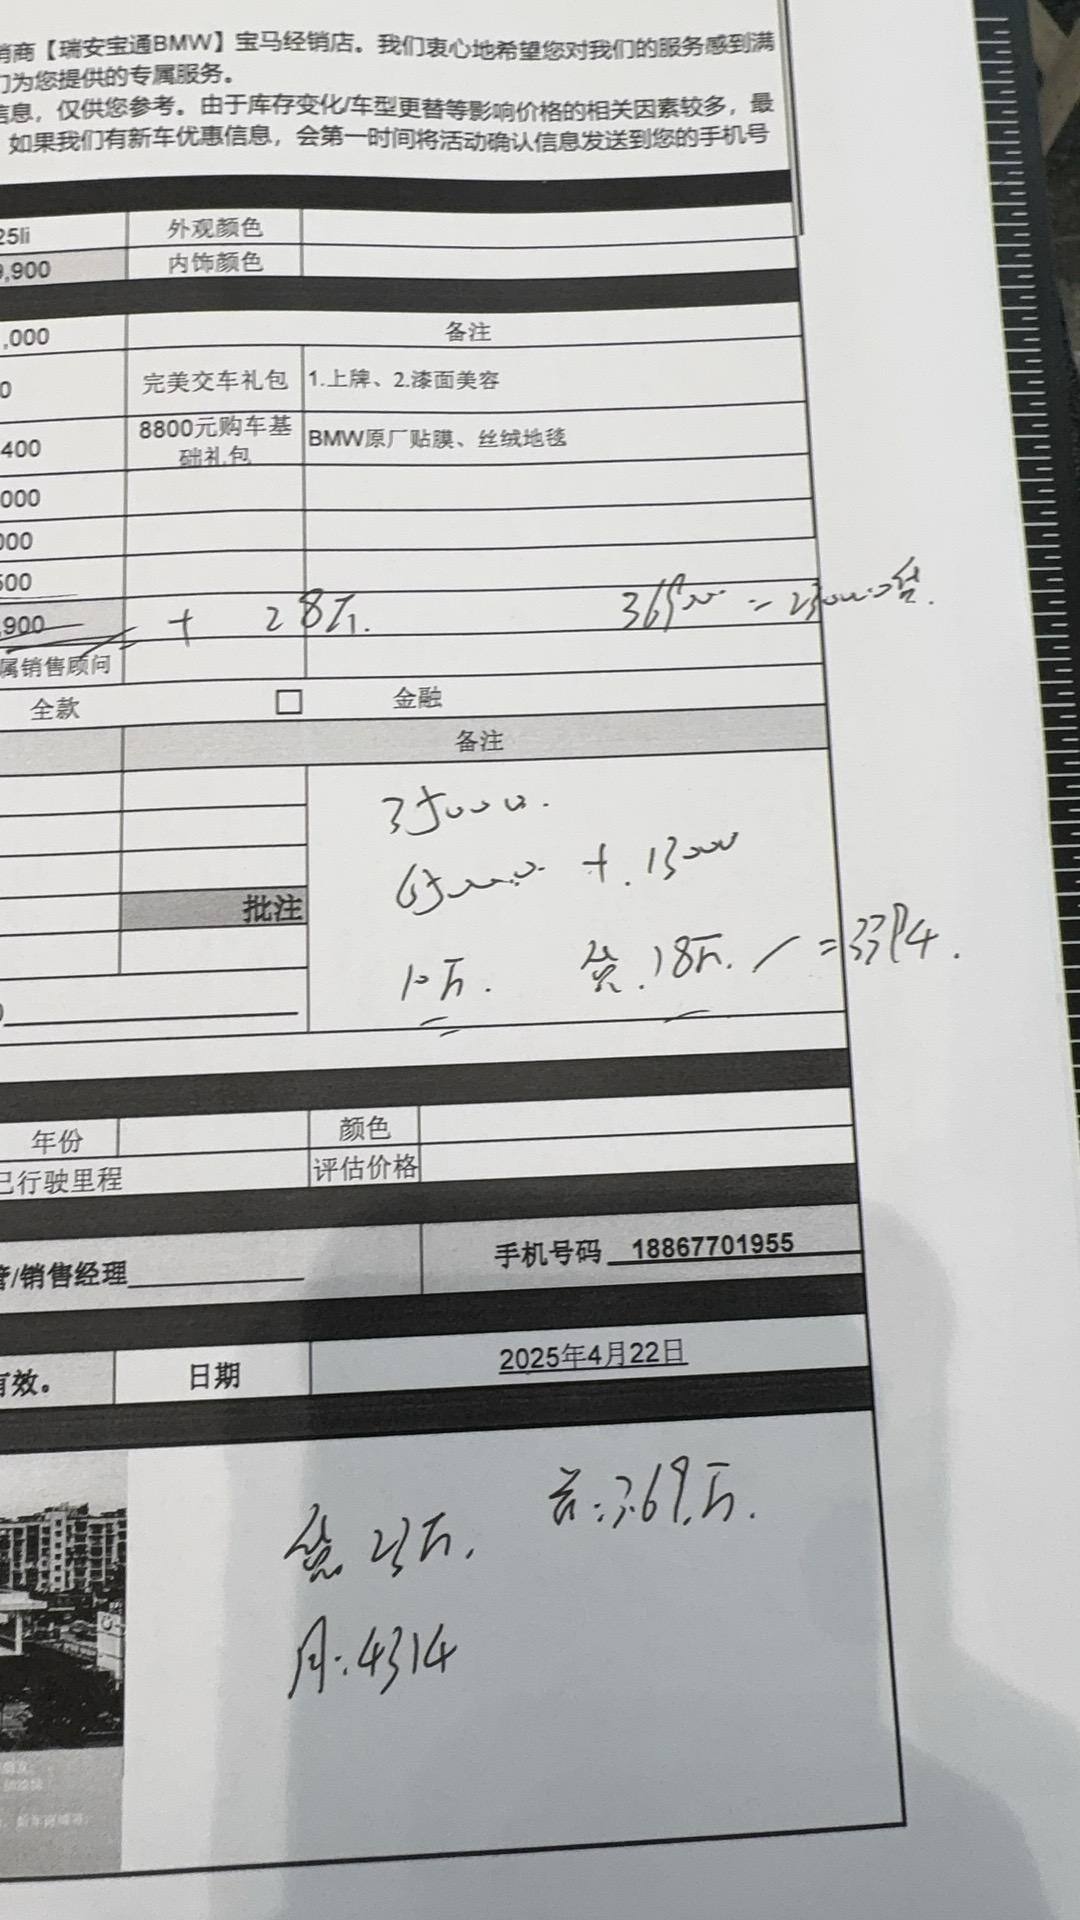 销商【瑞安宝通BMW】宝马经销店。我们衷心地希望您对我们的服务感到满
们为您提供的专属服务。
信息，仅供您参考。由于库存变化/车型更替等影响价格的相关因素较多，最
如果我们有新车优惠信息，会第一时间将活动确认信息发送到您的手机号
25li 外观颜色
9,900 内饰颜色
,000 备注
0 完美交车礼包 1.上牌、2.漆面美容
400 8800元购车基础礼包 BMW原厂贴膜、丝绒地毯
000
000
500
,900 + 28万.
属销售顾问
全款 □ 金融
备注
35000.
65000 + 13000
批注
10万. 贷.18万. =3394.
年份 颜色
已行驶里程 评估价格
管/销售经理 手机号码 18867701955
有效。 日期 2025年4月22日
贷 23万. 首:3.69万.
月:4314